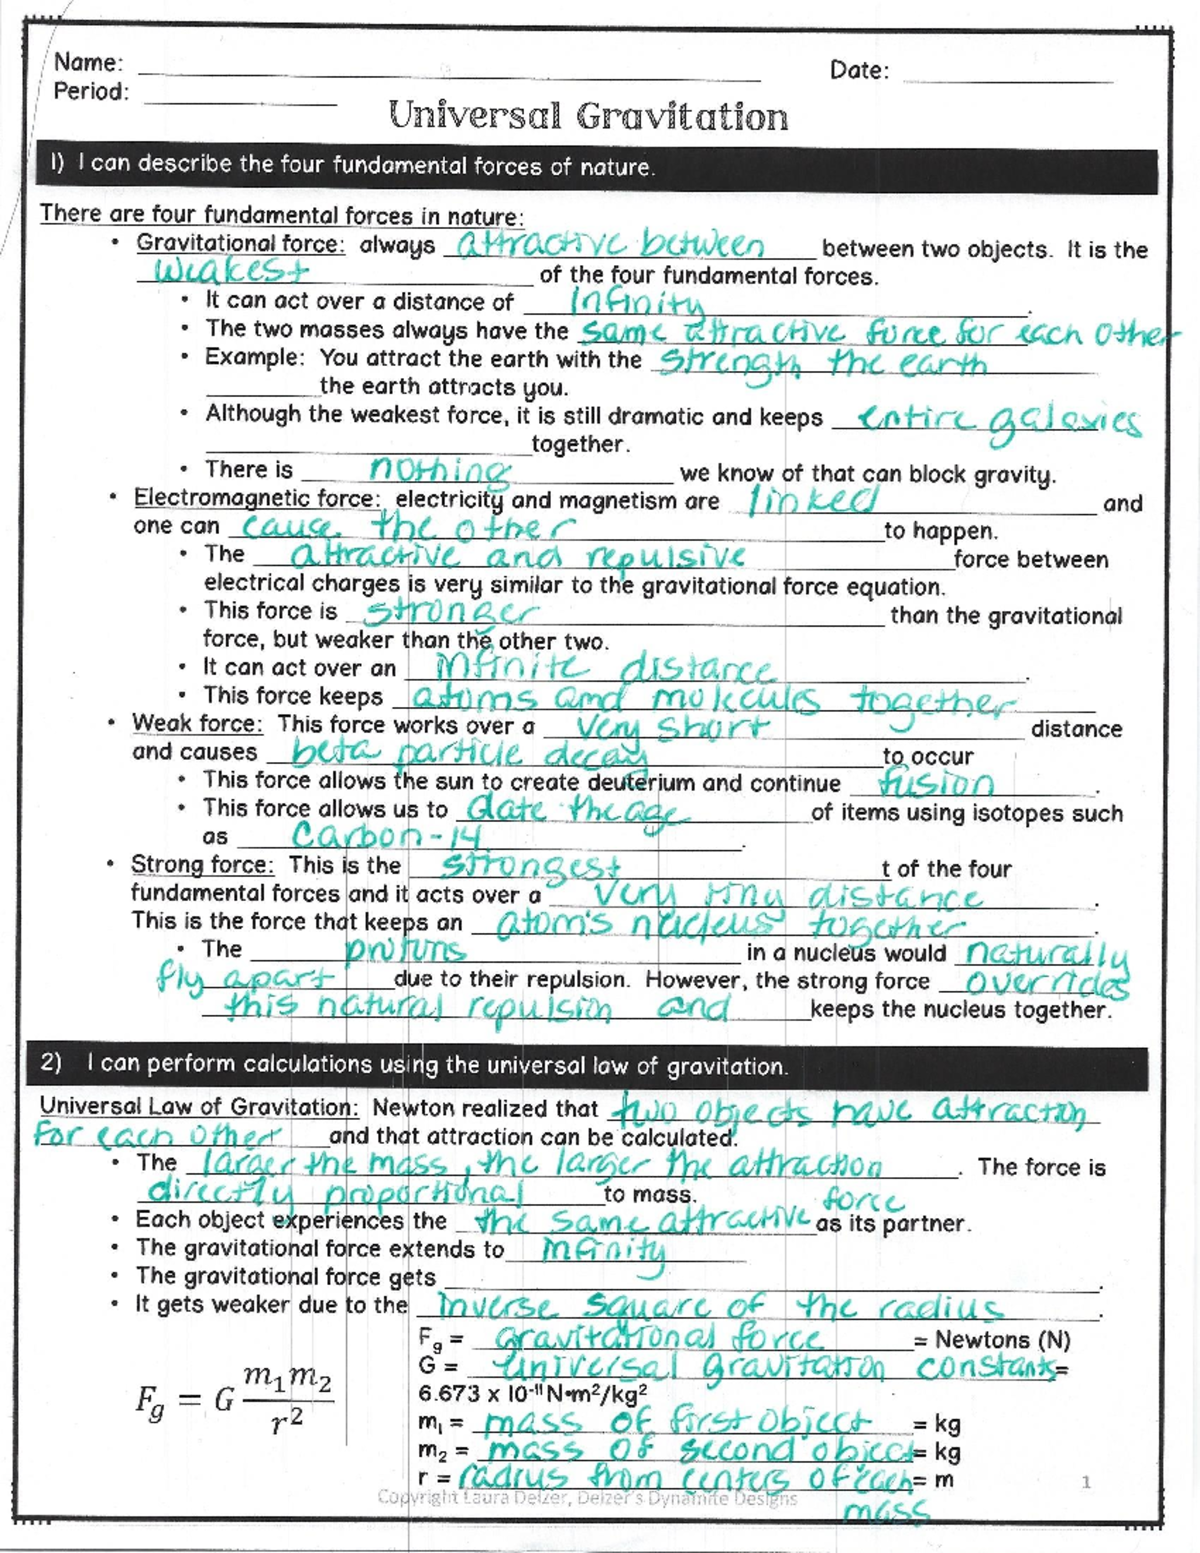 Name: ____ Date: ____
Period: ____
Universal Gravitation
1) I can describe the four fundamental forces of nature.
There are four fundamental forces in nature:
• Gravitational force: always attractive between between two objects. It is the
weakest of the four fundamental forces.
• It can act over a distance of infinity.
• The two masses always have the same attractive force for each other
• Example: You attract the earth with the strength the earth
____ the earth attracts you.
• Although the weakest force, it is still dramatic and keeps entire galaxies
____ together.
• There is nothing we know of that can block gravity.
• Electromagnetic force: electricity and magnetism are linked and
one can cause the other to happen.
• The attractive and repulsive force between
electrical charges is very similar to the gravitational force equation.
• This force is stronger than the gravitational
force, but weaker than the other two.
• It can act over an infinite distance.
• This force keeps atoms and molecules together
• Weak force: This force works over a very short distance
and causes beta particle decay to occur
• This force allows the sun to create deuterium and continue fusion.
• This force allows us to date the age of items using isotopes such
as Carbon-14.
• Strong force: This is the strongest t of the four
fundamental forces and it acts over a very tiny distance.
This is the force that keeps an atom's nucleus together.
• The protons in a nucleus would naturally
fly apart due to their repulsion. However, the strong force overrides
this natural repulsion and keeps the nucleus together.
2) I can perform calculations using the universal law of gravitation.
Universal Law of Gravitation: Newton realized that two objects have attraction
for each other and that attraction can be calculated.
• The larger the mass, the larger the attraction. The force is
directly proportional to mass.
• Each object experiences the the same attractive force as its partner.
• The gravitational force extends to infinity
• The gravitational force gets ____.
• It gets weaker due to the inverse square of the radius.
Fg = gravitational force = Newtons (N)
G = universal gravitation constants =
6.673 x 10⁻¹¹ N•m²/kg²
Fg = G m₁m₂ / r²
m₁ = mass of first object = kg
m₂ = mass of second object = kg
r = radius from centers of each = m
mass
Copyright Laura Delzer, Delzer's Dynamite Designs
1